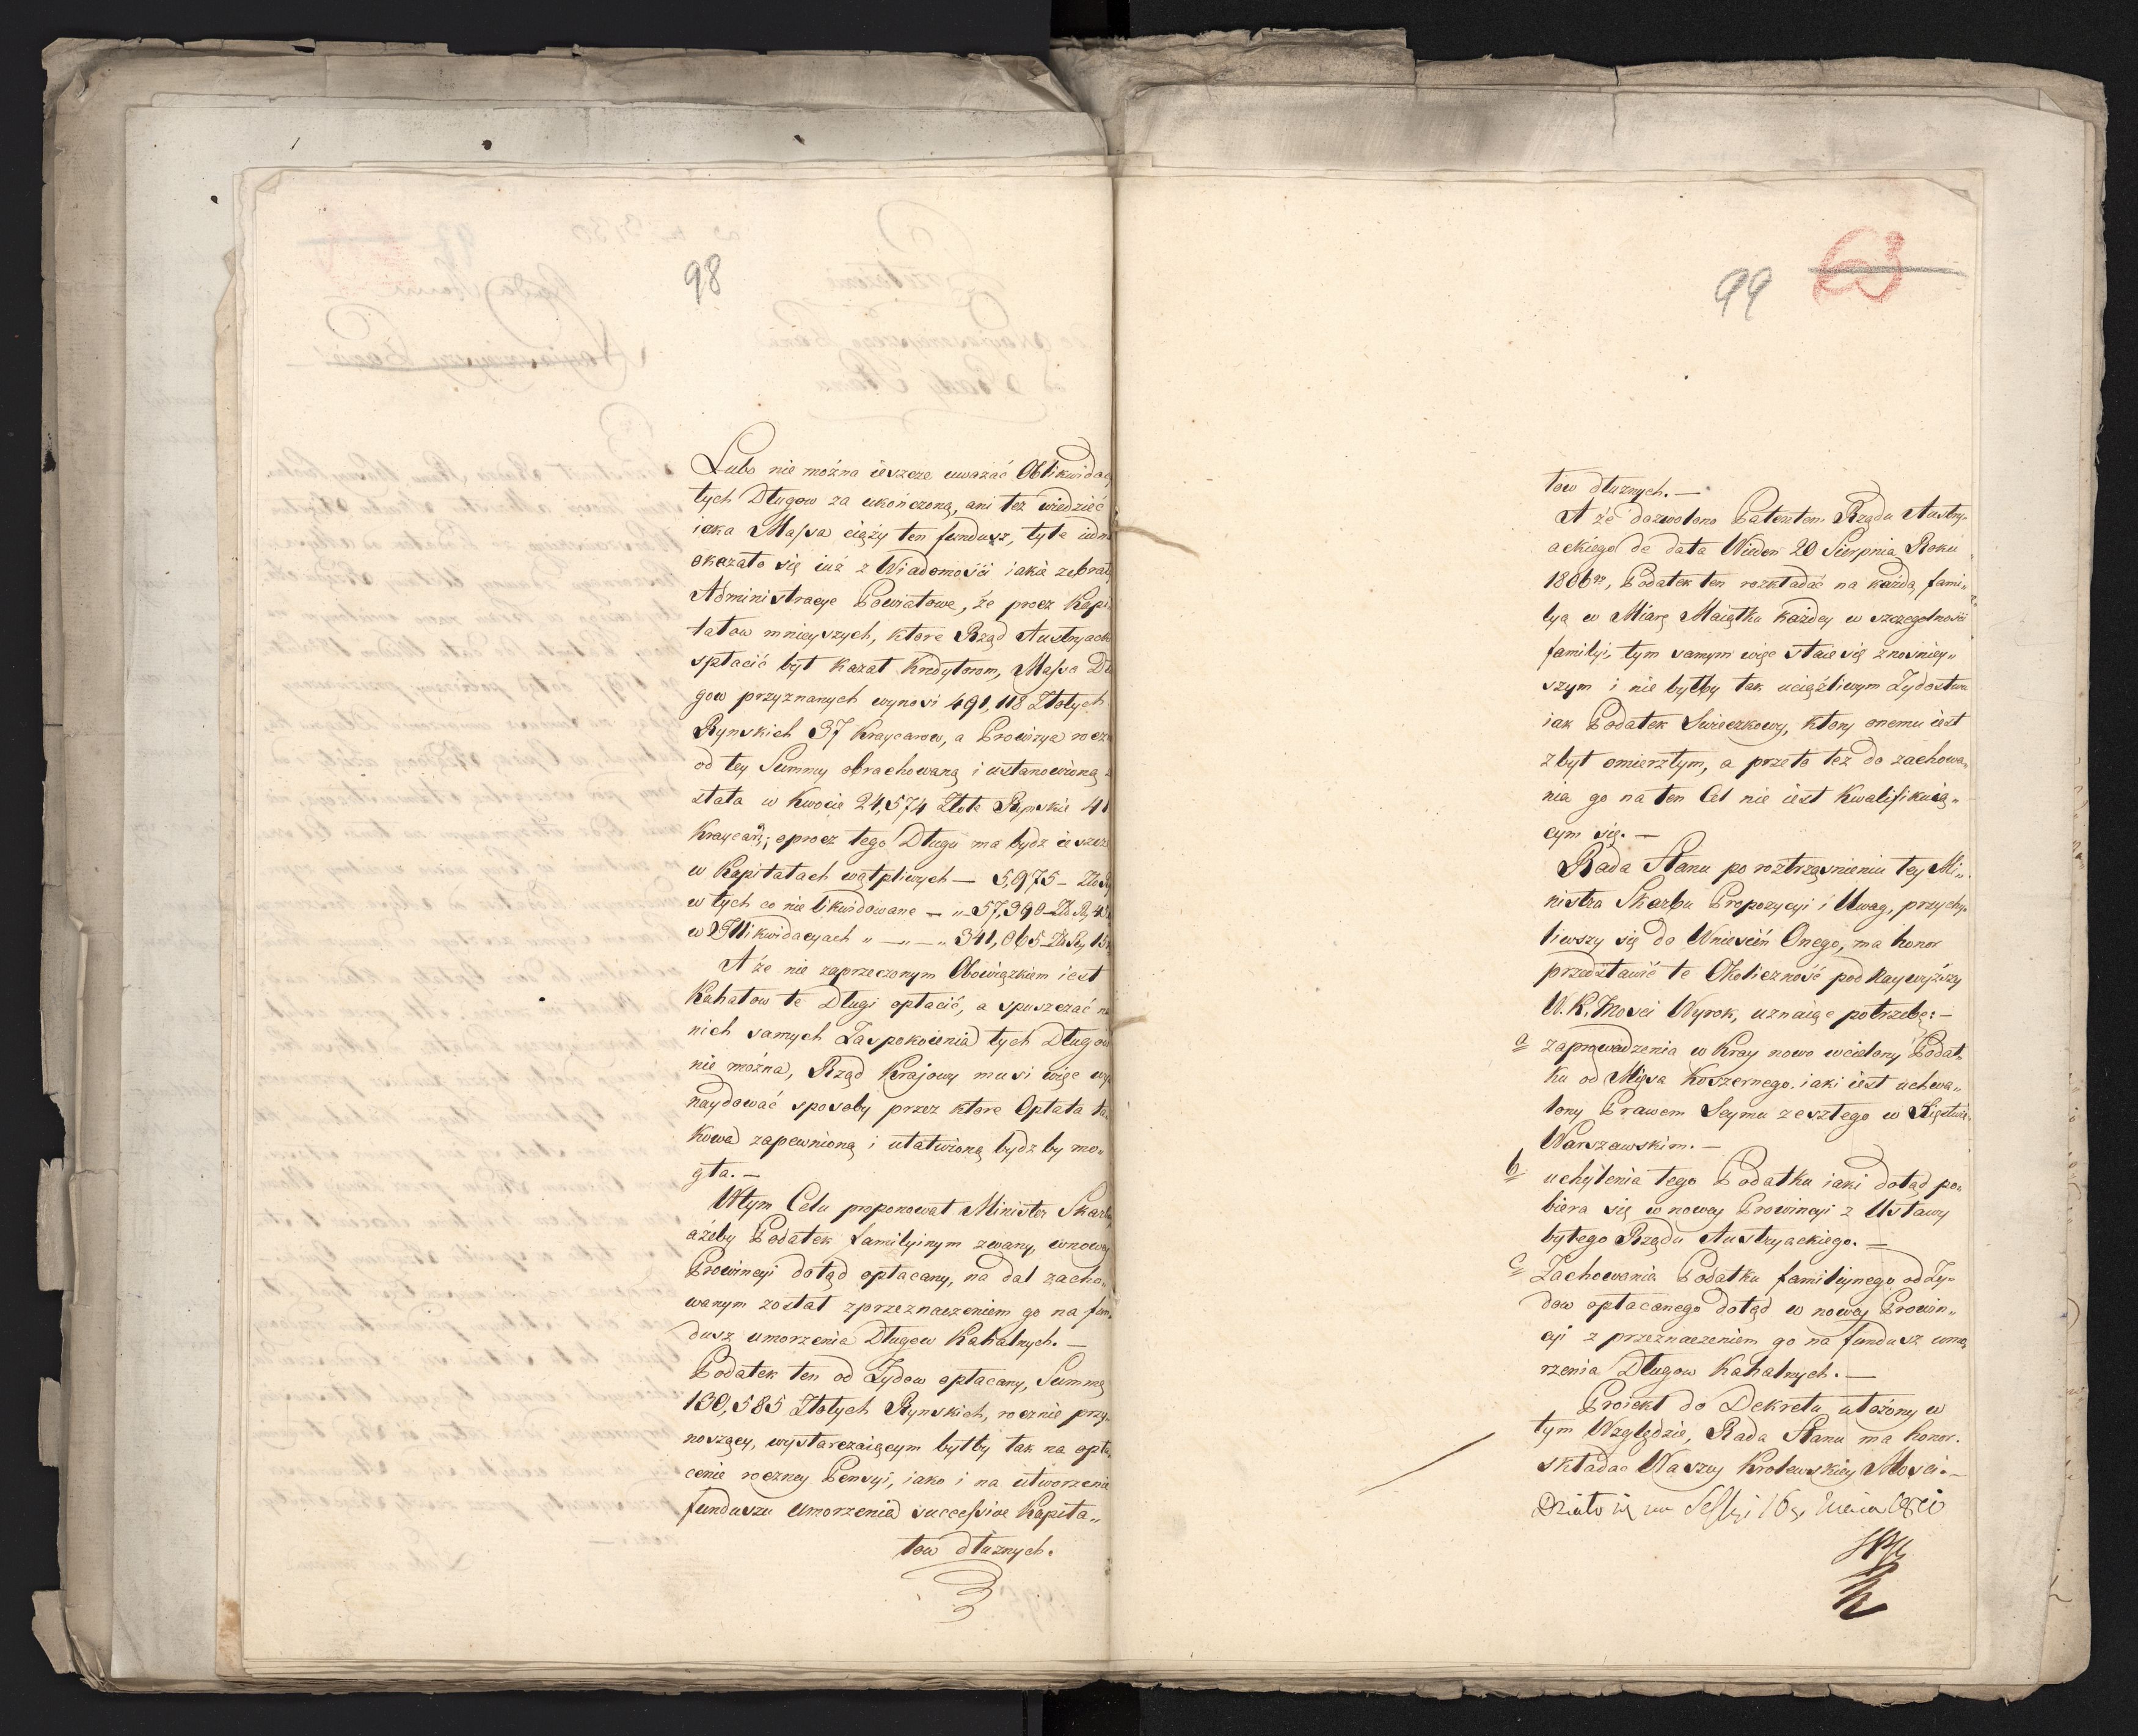 98
Lubo nie można ieszcze uważać Oblikwidac
tych Długow za ukończoną, ani też wiedzieć
iaka Massa ciąży ten fundusz, tyle
okazało się iuż z Wiadomości iakie zebrały
Administracye Powiatowe, że procz Kapi
tałow mnieyszych, ktore Rząd Austryack
spłacić był kazał Kredytorom, Massa Dłu
gow przyznanych wynosi 491,118 Złotych
Rynskich 37 Kraycarow, a Prowizya roczn
od tey Summy obrachowaną i ustanowioną z
stała w Kwocie 24,574 Złote Rynskie 41
Kraycary; oprocz tego Długu ma bydz ieszcze
w Kapitałach wątpliwych — 5,975 —
w tych co nie likwidowane — „ 57,390
w Illikwidacyach „ — „ — „ 341,065
A że nie zaprzeczonym Obowiązkiem iest
Kahałow te Długi opłacić, a spuszczać na
nich samych Zaspokoienia tych Długow
nie można, Rząd Krajowy musi więc wy
naydować sposoby przez ktore Opłata ta
kowa zapewnioną i ułatwioną bydz by mo„
gła. —
W tym Celu proponował Minister Skarbu
ażeby Podatek familyinym zwany, w nowey
Prowincyi dotąd opłacany, na dal zacho„
wanym został z przeznaczeniem go na fun„
dusz umorzenia Długow Kahalnych. —
Podatek ten od Żydow opłacany, Summę
130,585 Złotych Rynskich, rocznie przy„
noszący, wystarczaiącym byłby tak na opła„
cenie roczney Pensyi, iako i na utworzenie
funduszu umorzenia successive Kapita„
łow dłużnych.
99 63
łow dłużnych. —
A że dozwolono Patentem Rządu Austry„
ackiego de data Wiedeń 20 Sierpnia Roku
1806go, Podatek ten rozkładać na każdą fami„
lyą w Miarę Maiątku każdey w szczegolności
familyi, tym samym więc staie się znosniey„
szym i nie byłby tak uciążliwym Żydostwu
iak Podatek Swieczkowy, ktory onemu iest
zbyt omierzłym, a przeto też do zachowa„
nia go na ten Cel nie iest kwalifikuią„
cym się. —
Rada Stanu po roztrząsnieniu tey Mi„
nistra Skarbu Propozycyi i Uwag, przychy„
liwszy się do Wniesień Onego, ma honor
przedstawić te Okoliczność pod Naywyższy
W. K. Mosci Wyrok, uznaiąc potrzebę: —
a zaprowadzenia w Kray nowo wcielony Podat„
ku od Mięsa Koszernego, iaki iest uchwa„
lony Prawem Seymu zeszłego w Xięstwie
Warszawskim. —
b uchylenia tego Podatku iaki dotąd po„
biera się w nowey Prowincyi z Ustawy
byłego Rządu Austryackiego. —
c Zachowania Podatku familijnego od Ży„
dow opłacanego dotąd w nowey Prowin„
cyi z przeznaczeniem go na fundusz umo„
rzenia Długow Kahalnych. —
Proiekt do Dekretu ułożony w
tym Względzie, Rada Stanu ma honor
składać Waszey Krolewskiey Mosci. —
Działo się na Sessyi 16